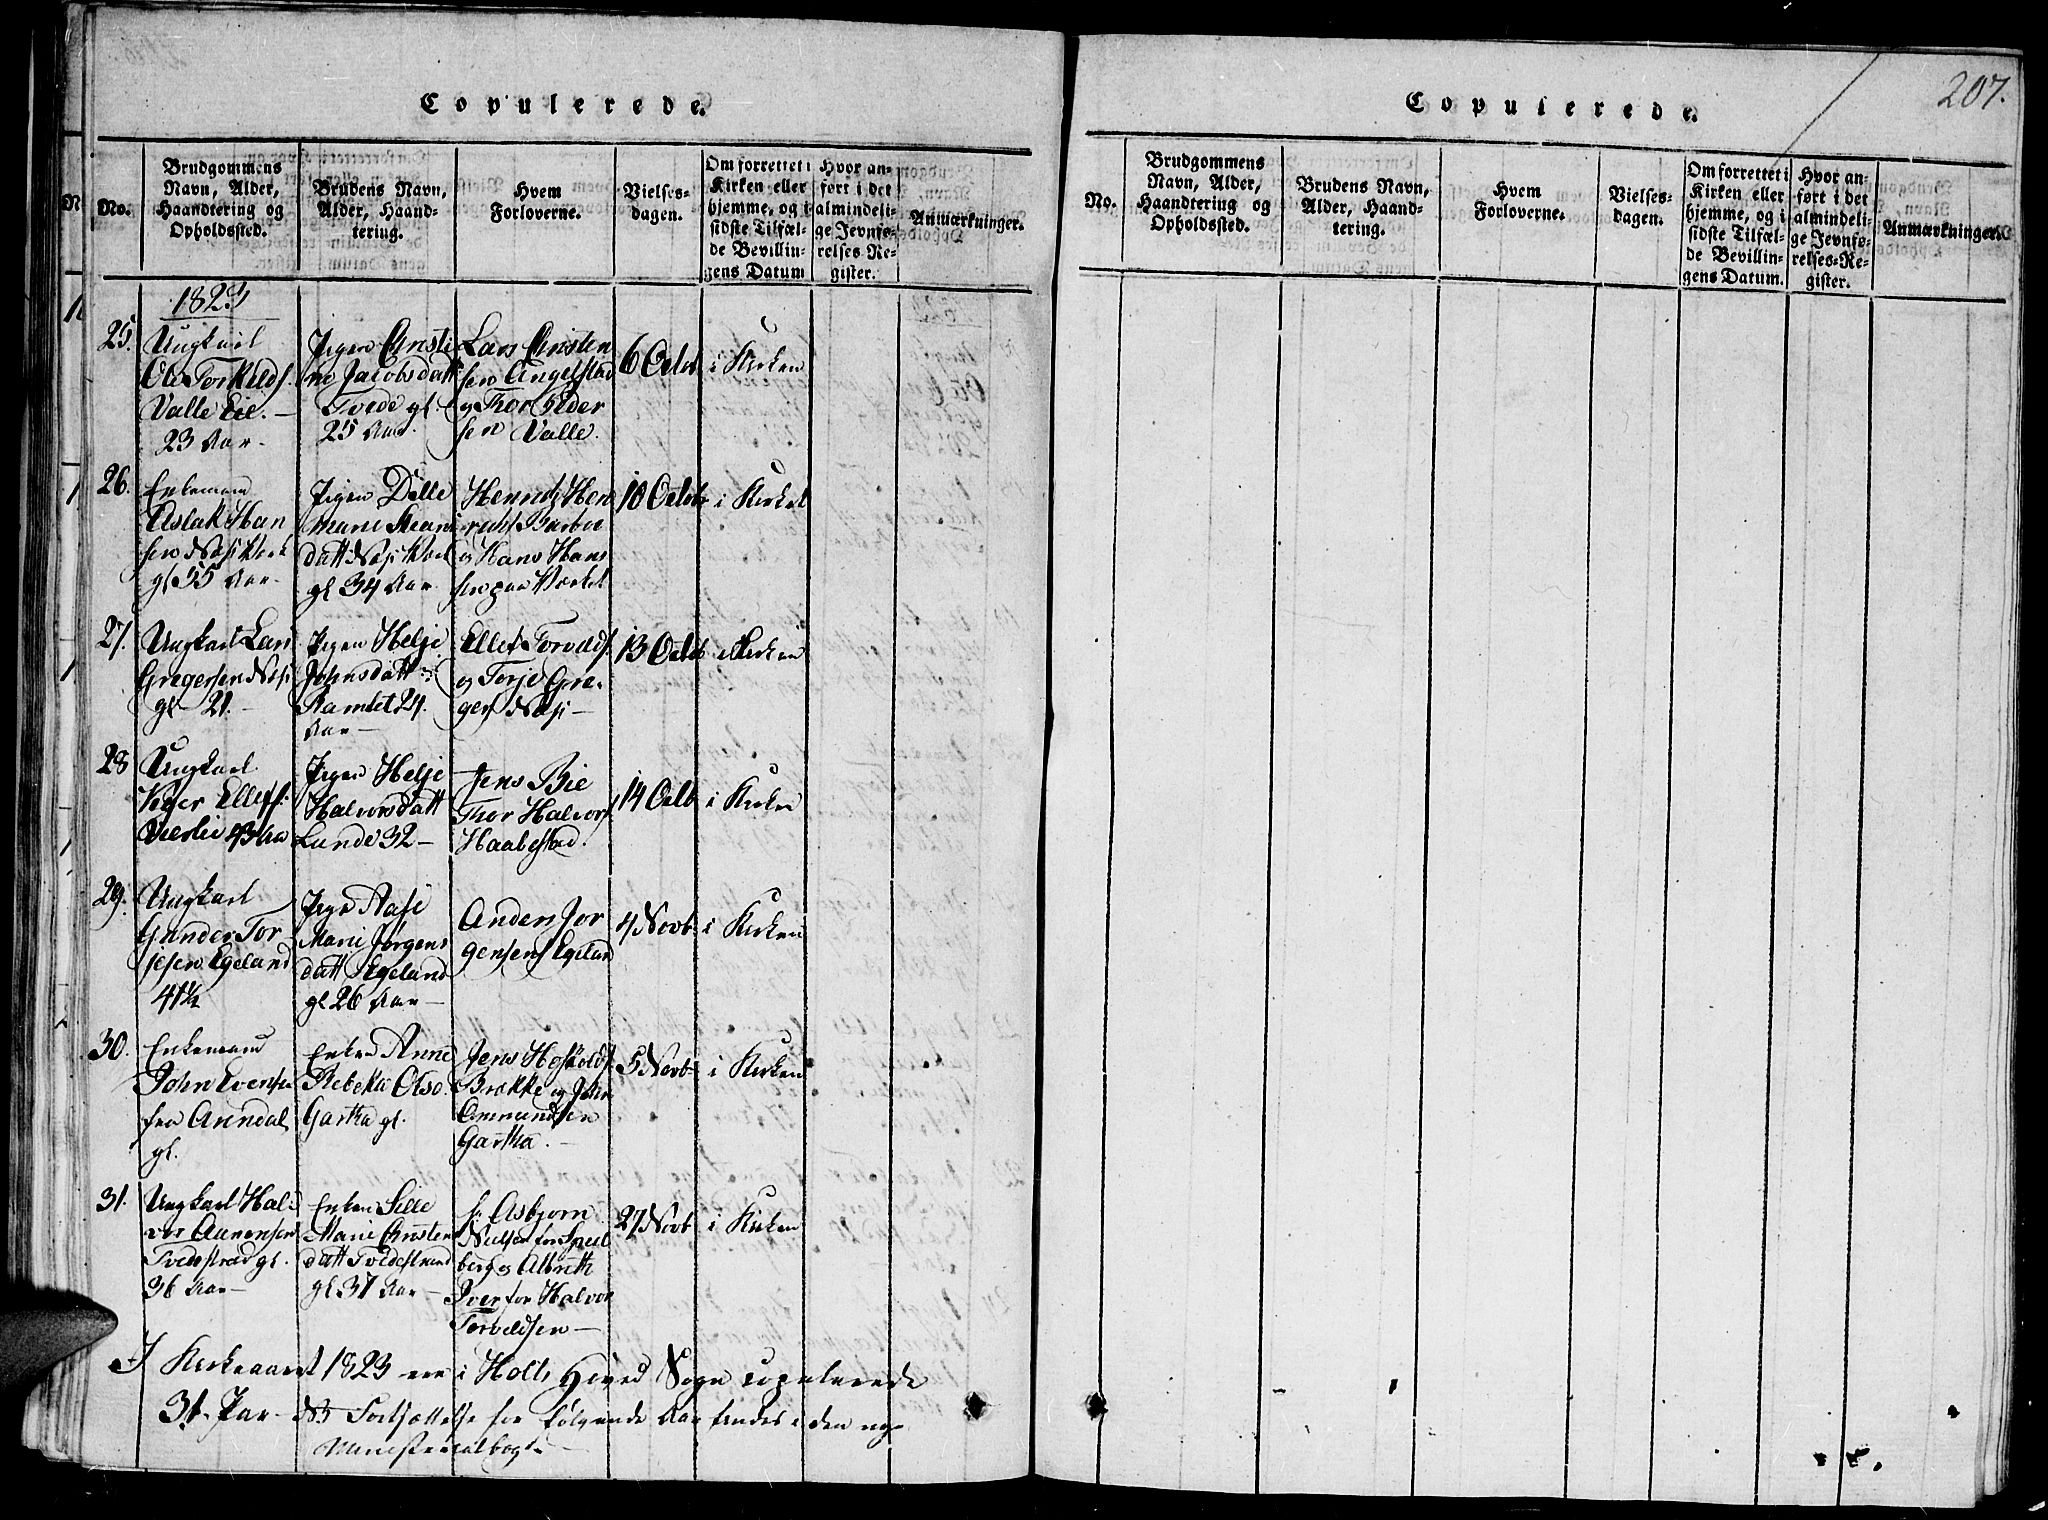 Copulerede.
No.
Brudgommens
Navn, Alder,
Haandtering og
Opholdssted.
Brudens Navn,
Alder, Haand-
tering.
Hvem
Forloverne.
Vielses-
dagen.
Om forrettet i
Kirken eller
hjemme, og i
sidste Tilfæl-
de Bevillin-
gens Datum
Hvor an-
ført i det
almindeli-
ge Jevnfø-
relses-Re-
gister.
Anmærkninger.
1823
25.
Ungkarl
Ole Torkilds.
Valle Eie. -
23 Aar -
Pigen Christi
ne Jacobsdatt
Tvede gl
25 Aar.
Lars Christen
sen Angelstad
og Thor Peder
sen Valle.
6 Octob
i Kirken
26.
Enkemand
Aslak Han
sen Næs Værk
gl 55 Aar -
Pigen
Marie
datt Næs Værk
gl 34 Aar -
og Hans Hans
sen paa Værket
10 Octob
i Kirken
27.
Ungkarl Lars
Gregersen Næs
gl 21. -
Pigen Helje
Johnsdatt
Ramlet 24
Aar -
Ellef Torvelds.
og Torje Gre-
gers Næs -
13 Octob
i Kirken
28
Ungkarl
Elless.
43 Aa
Pigen Helje
Halvorsdatt
Lunde 32 -
Jens Bie
Thor Halvors
Haabestad.
14 Octb
i Kirken
29.
Ungkarl
Gunder Tor
jesen Egeland
41½
Pige Aase
Marie Jørgens
datt Egeland
gl 26 Aar -
Anders Jør
gensen Egeland
4 Novb
i Kirken
30.
Enkemand
John Evensen
fra Arendal
gl.
Enken Anne
Rebekka Olsd.
Gartha gl.
Jens
Brække og John
Ommundsen
Gartha. -
5 Novb
i Kirken
31.
Ungkarl Hal
vor Aanensen
Tvedestrand gl.
36 Aar -
Enken Sille
Marie Christens
datt Tvedestrand
gl 37 Aar -
Asbjørn
Nielsen for
berg og Albreth
Iver for Halvor
Torveldsen -
27 Novb
i Kirken
I Kirkeaaret 1823 ere i Holts Hoved Sogn copulerede
31 Par - NB Fortsættelse for følgende Aar findes i den nye
Ministerialbog. -
207.
Copulerede.
No.
Brudgommens
Navn, Alder,
Haandtering og
Opholdssted.
Brudens Navn,
Alder, Haand-
tering.
Hvem
Forloverne.
Vielses-
dagen.
Om forrettet i
Kirken eller
hjemme, og i
sidste Tilfæl-
de Bevillin-
gens Datum.
Hvor an-
ført i det
almindeli-
ge Jevnfø-
relses-Re-
gister.
Anmærkninger.